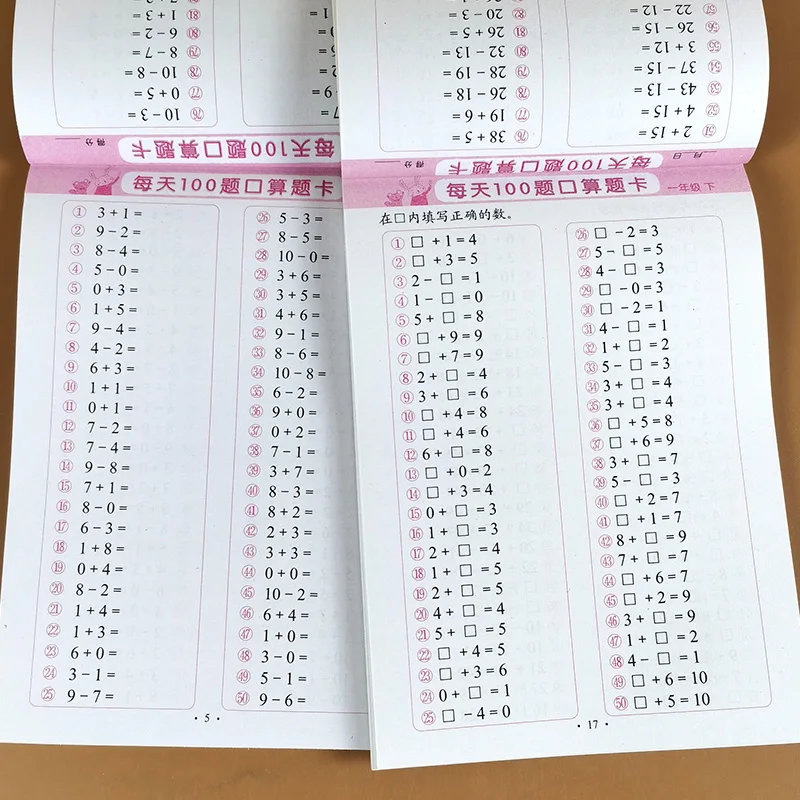 81 1 + 3 =
80 6 − 2 =
79 8 − 7 =
78 10 − 8 =
77 0 + 5 =
76 10 − 3 =
20 − 3 =
81 26 + 5 =
80 32 − 13 =
79 28 − 19 =
78 26 − 18 =
77 19 + 6 =
76 38 + 5 =
22 − 12 =
56 26 − 15 =
55 3 + 12 =
54 37 − 15 =
53 43 − 13 =
52 4 + 15 =
51 2 + 15 =
每天100题口算题卡
得分
每天100题口算题卡
得分
月 日
每天100题口算题卡
① 3 + 1 =
② 9 − 2 =
③ 8 − 4 =
④ 5 − 0 =
⑤ 0 + 3 =
⑥ 1 + 5 =
⑦ 9 − 4 =
⑧ 4 − 2 =
⑨ 6 + 3 =
⑩ 1 + 1 =
⑪ 0 + 1 =
⑫ 7 − 2 =
⑬ 7 − 4 =
⑭ 9 − 8 =
⑮ 7 + 1 =
⑯ 8 − 0 =
⑰ 6 − 3 =
⑱ 1 + 8 =
⑲ 0 + 4 =
⑳ 8 − 2 =
㉑ 1 + 4 =
㉒ 1 + 3 =
㉓ 6 + 0 =
㉔ 3 − 1 =
㉕ 9 − 7 =
㉖ 5 − 3 =
㉗ 8 − 5 =
㉘ 10 − 0 =
㉙ 3 + 6 =
㉚ 3 + 5 =
㉛ 4 + 6 =
㉜ 9 − 1 =
㉝ 8 − 6 =
㉞ 10 − 8 =
㉟ 6 − 2 =
㊱ 9 + 0 =
㊲ 0 + 2 =
㊳ 7 − 1 =
㊴ 3 + 7 =
㊵ 8 − 3 =
㊶ 8 + 2 =
㊷ 2 + 3 =
㊸ 3 + 3 =
㊹ 0 + 0 =
㊺ 10 − 2 =
㊻ 6 + 4 =
㊼ 1 + 0 =
㊽ 3 − 0 =
㊾ 5 − 1 =
㊿ 9 − 6 =
· 5 ·
每天100题口算题卡 一年级 下
在□内填写正确的数。
① □ + 1 = 4
② □ + 3 = 5
③ 2 − □ = 1
④ 1 − □ = 0
⑤ 5 + □ = 8
⑥ □ + 9 = 9
⑦ □ + 7 = 9
⑧ 2 + □ = 4
⑨ 3 + □ = 6
⑩ □ + 4 = 8
⑪ □ + 4 = 6
⑫ 6 + □ = 8
⑬ □ + 0 = 2
⑭ □ + 3 = 4
⑮ 0 + □ = 3
⑯ 1 + □ = 3
⑰ 2 + □ = 4
⑱ 1 + □ = 5
⑲ 2 + □ = 5
⑳ 4 + □ = 4
㉑ 5 + □ = 5
㉒ □ + 4 = 5
㉓ □ + 3 = 6
㉔ 0 + □ = 1
㉕ □ − 4 = 0
㉖ □ − 2 = 3
㉗ 5 − □ = 5
㉘ 4 − □ = 3
㉙ □ − 0 = 3
㉚ □ − 2 = 1
㉛ 4 − □ = 1
㉜ 1 + □ = 2
㉝ 5 − □ = 3
㉞ 3 + □ = 4
㉟ 3 + □ = 4
㊱ □ + 5 = 8
㊲ □ + 6 = 9
㊳ 3 + □ = 7
㊴ 5 − □ = 3
㊵ □ + 2 = 7
㊶ □ + 1 = 7
㊷ 8 + □ = 9
㊸ 7 + □ = 7
㊹ □ + 6 = 7
㊺ □ + 2 = 9
㊻ 3 + □ = 9
㊼ 1 + □ = 2
㊽ 4 − □ = 1
㊾ □ + 6 = 10
㊿ □ + 5 = 10
· 17 ·